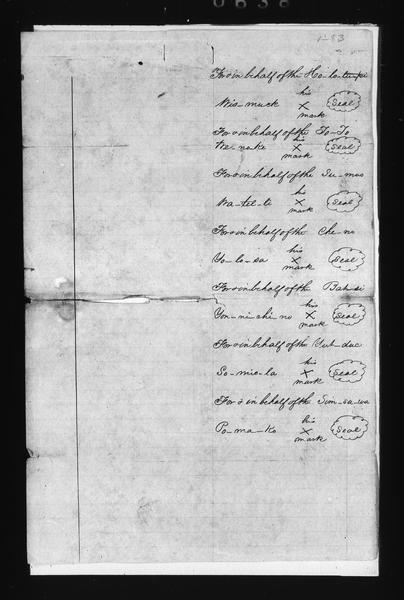 For & in behalf of the Ho-lo-
his
Wis-muck X Seal
mark
For & in behalf of the To-To
his
We-nake X Seal
mark
For & in behalf of the Su-mus
his
Wa-tel-li X Seal
mark
For & in behalf of the Che-no
his
Yo-lo-sa X Seal
mark
For & in behalf of the Bah-si
his
Yon-ni-chi-no X Seal
mark
For & in behalf of the Yut-duc
his
So-mie-la X Seal
mark
For & in behalf of the Sim-su-wa
his
Po-ma-ko X Seal
mark